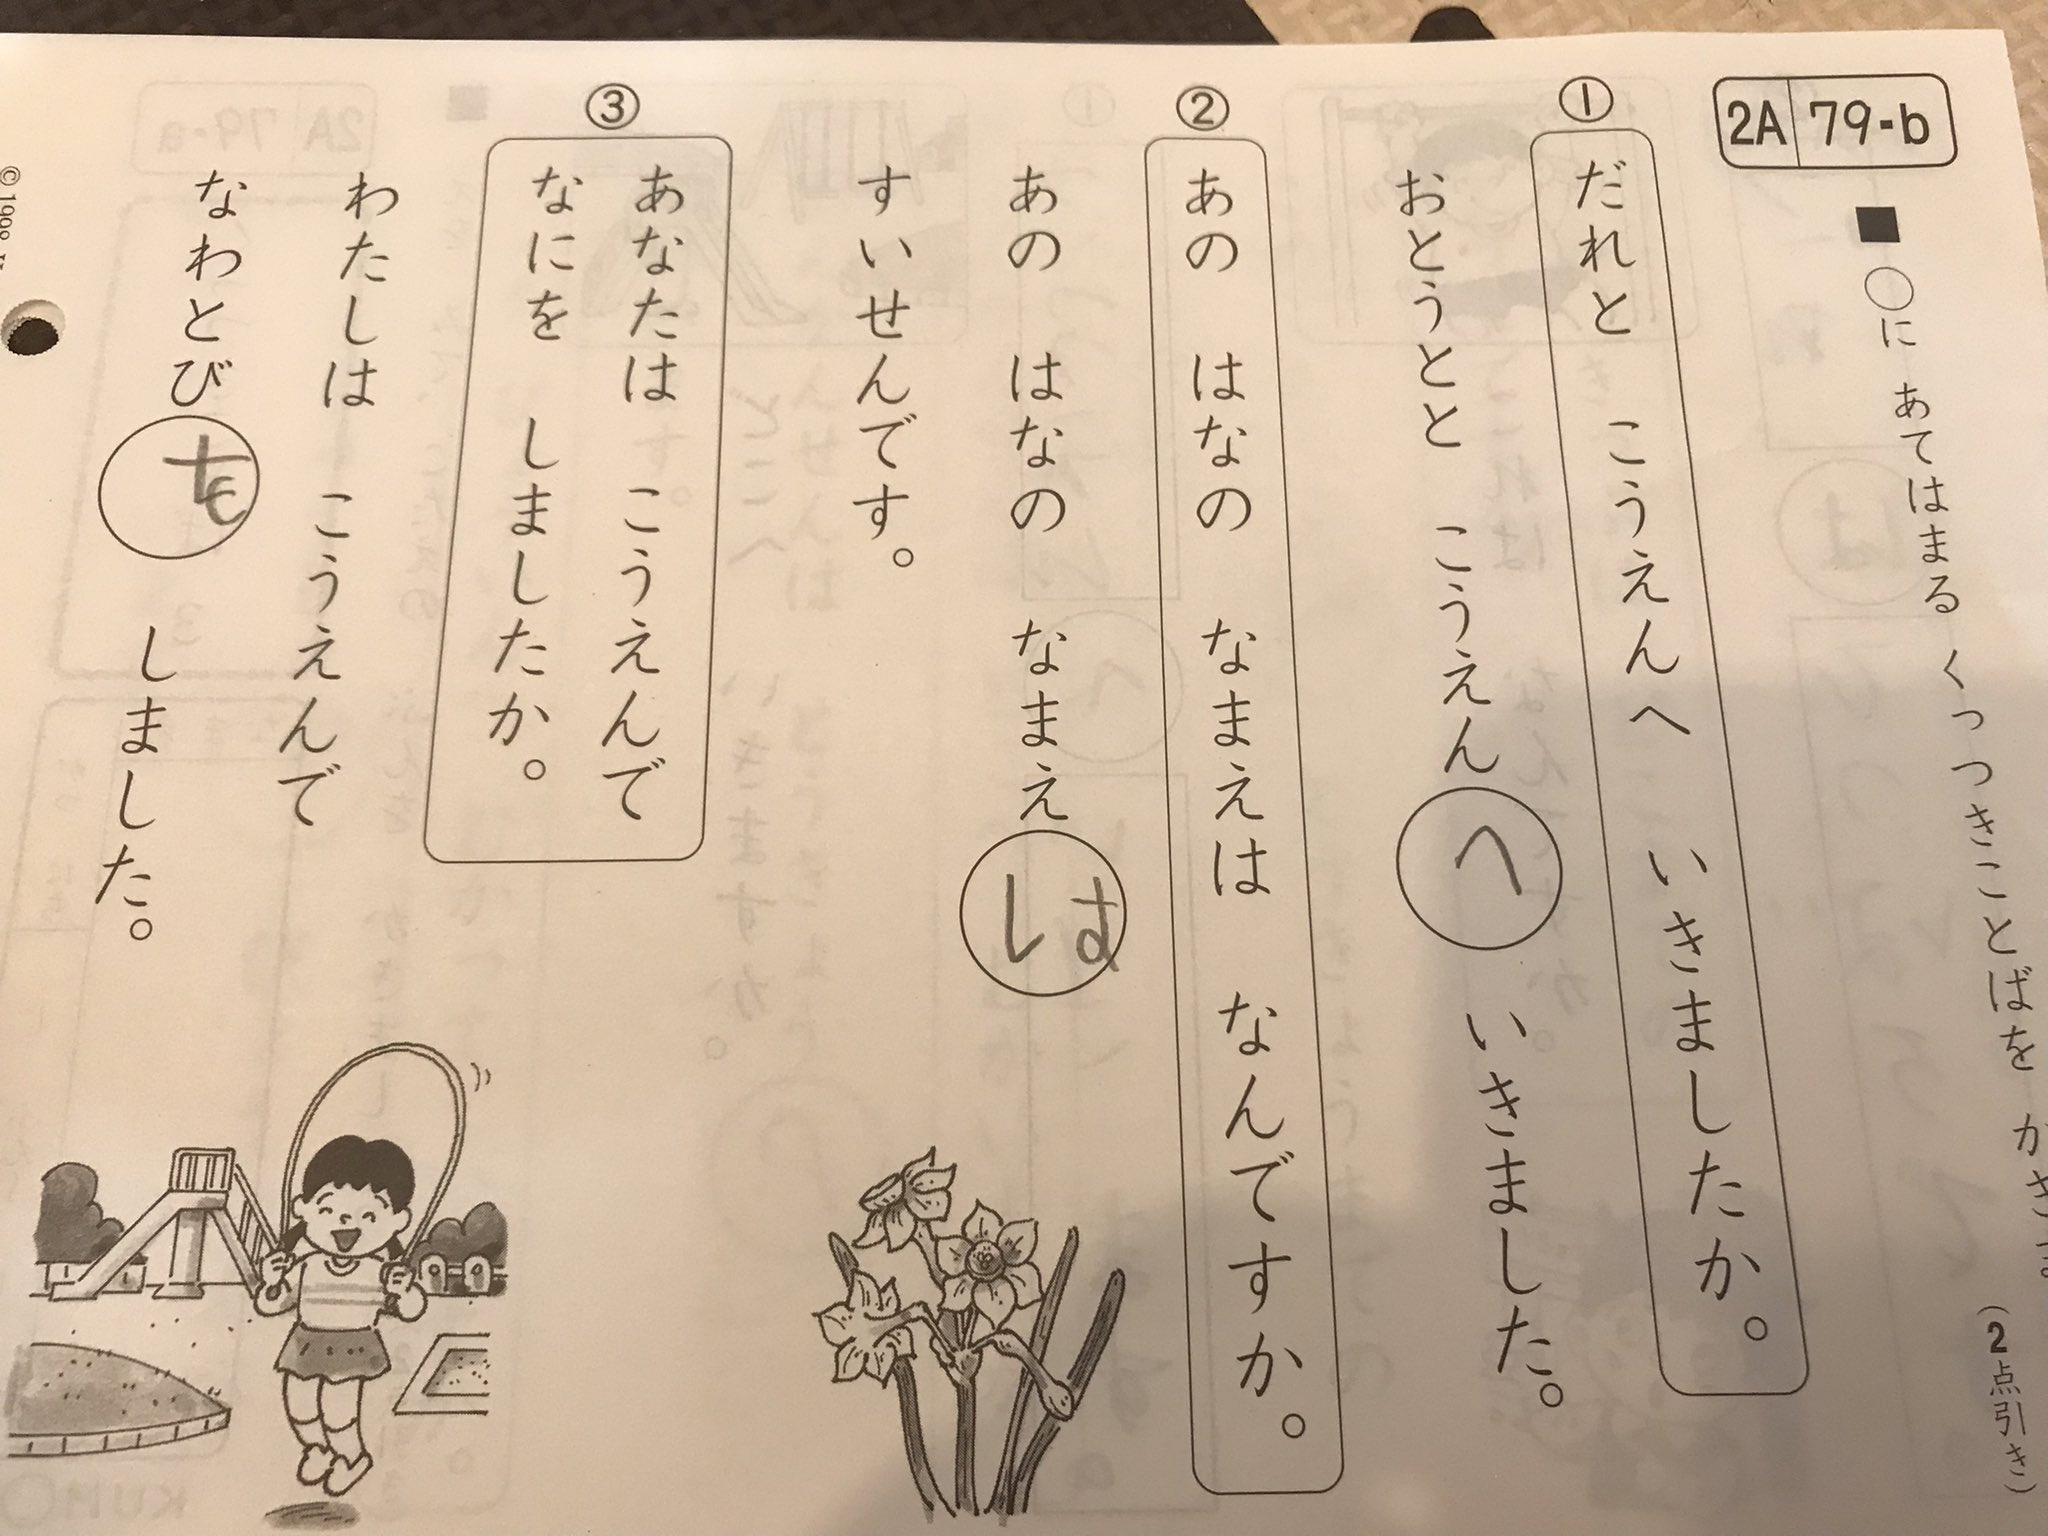 2A 79-b
■ ○に あてはまる くっつきことばを かきま
(2点引き)
①
だれと こうえんへ いきましたか。
おとうとと こうえんへ いきました。
②
あの はなの なまえは なんですか。
あの はなの なまえは
すいせんです。
③
あなたは こうえんで
なにを しましたか。
わたしは こうえんで
なわとびを しました。